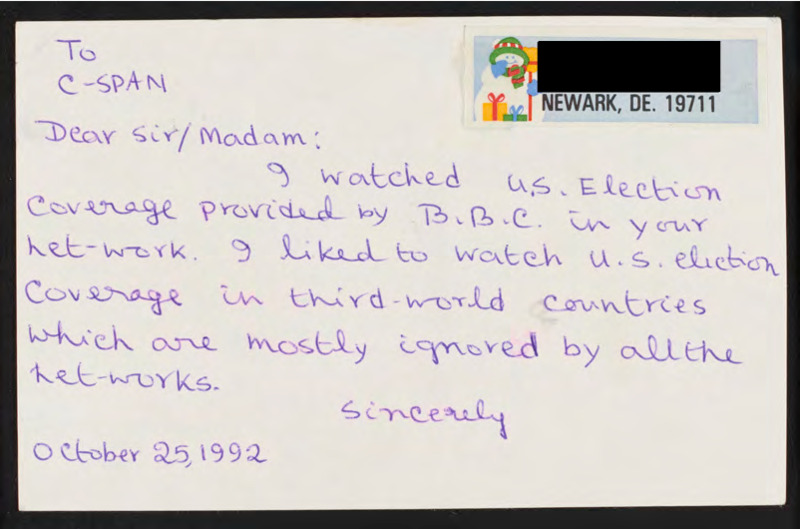 To
C-SPAN
NEWARK, DE. 19711
Dear Sir/Madam:
I watched U.S. Election
Coverage provided by B.B.C. in your
net-work. I liked to watch U.S. election
Coverage in third-world countries
which are mostly ignored by all the
net-works.
Sincerely
October 25, 1992